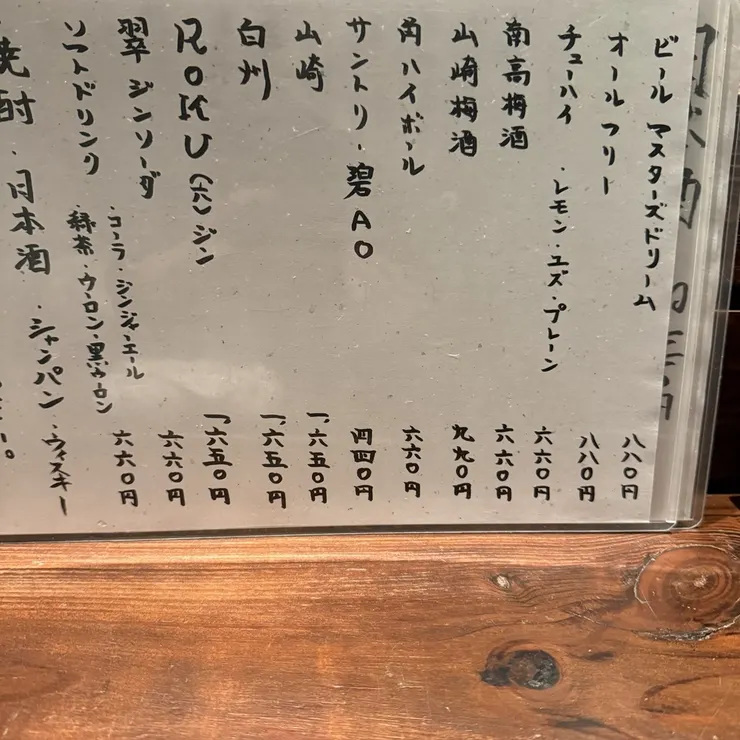 ビール マスターズドリーム 八八〇円
オール フリー 八八〇円
チューハイ ・レモン・ユズ・プレーン 六六〇円
南高梅酒 六六〇円
山崎梅酒 九九〇円
角ハイボール 六六〇円
サントリー 碧AO 四四〇円
山崎 一、六五〇円
白州 一、六五〇円
ROKU(六)ジン 一、六五〇円
翠ジンソーダ 六六〇円
ソフトドリンク ・コーラ・ジンジャーエール
・緑茶・ウーロン・黒ウーロン 六六〇円
焼酎・日本酒・シャンパン・ウィスキー